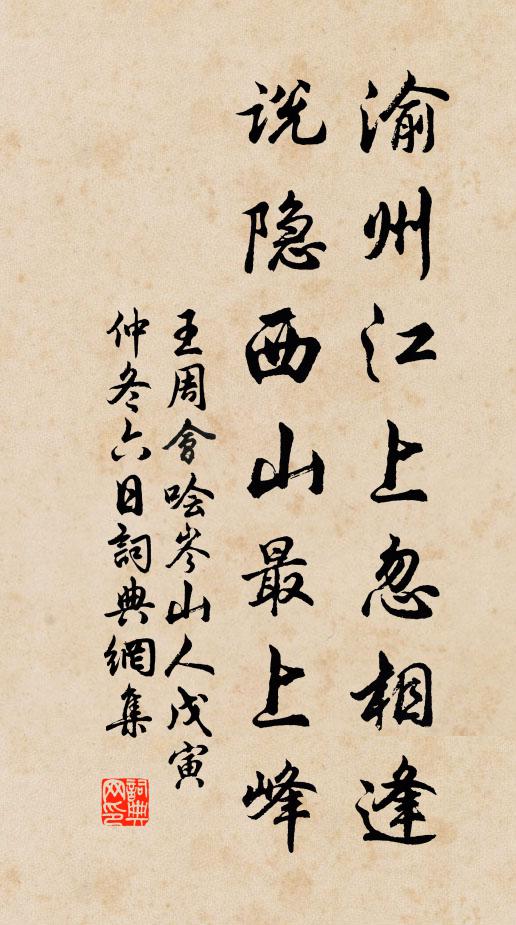 渝州江上忽相逢
说隐西山最上峰
王周會哙岑山人戊寅
仲冬六日詞典網集
詞典
网印